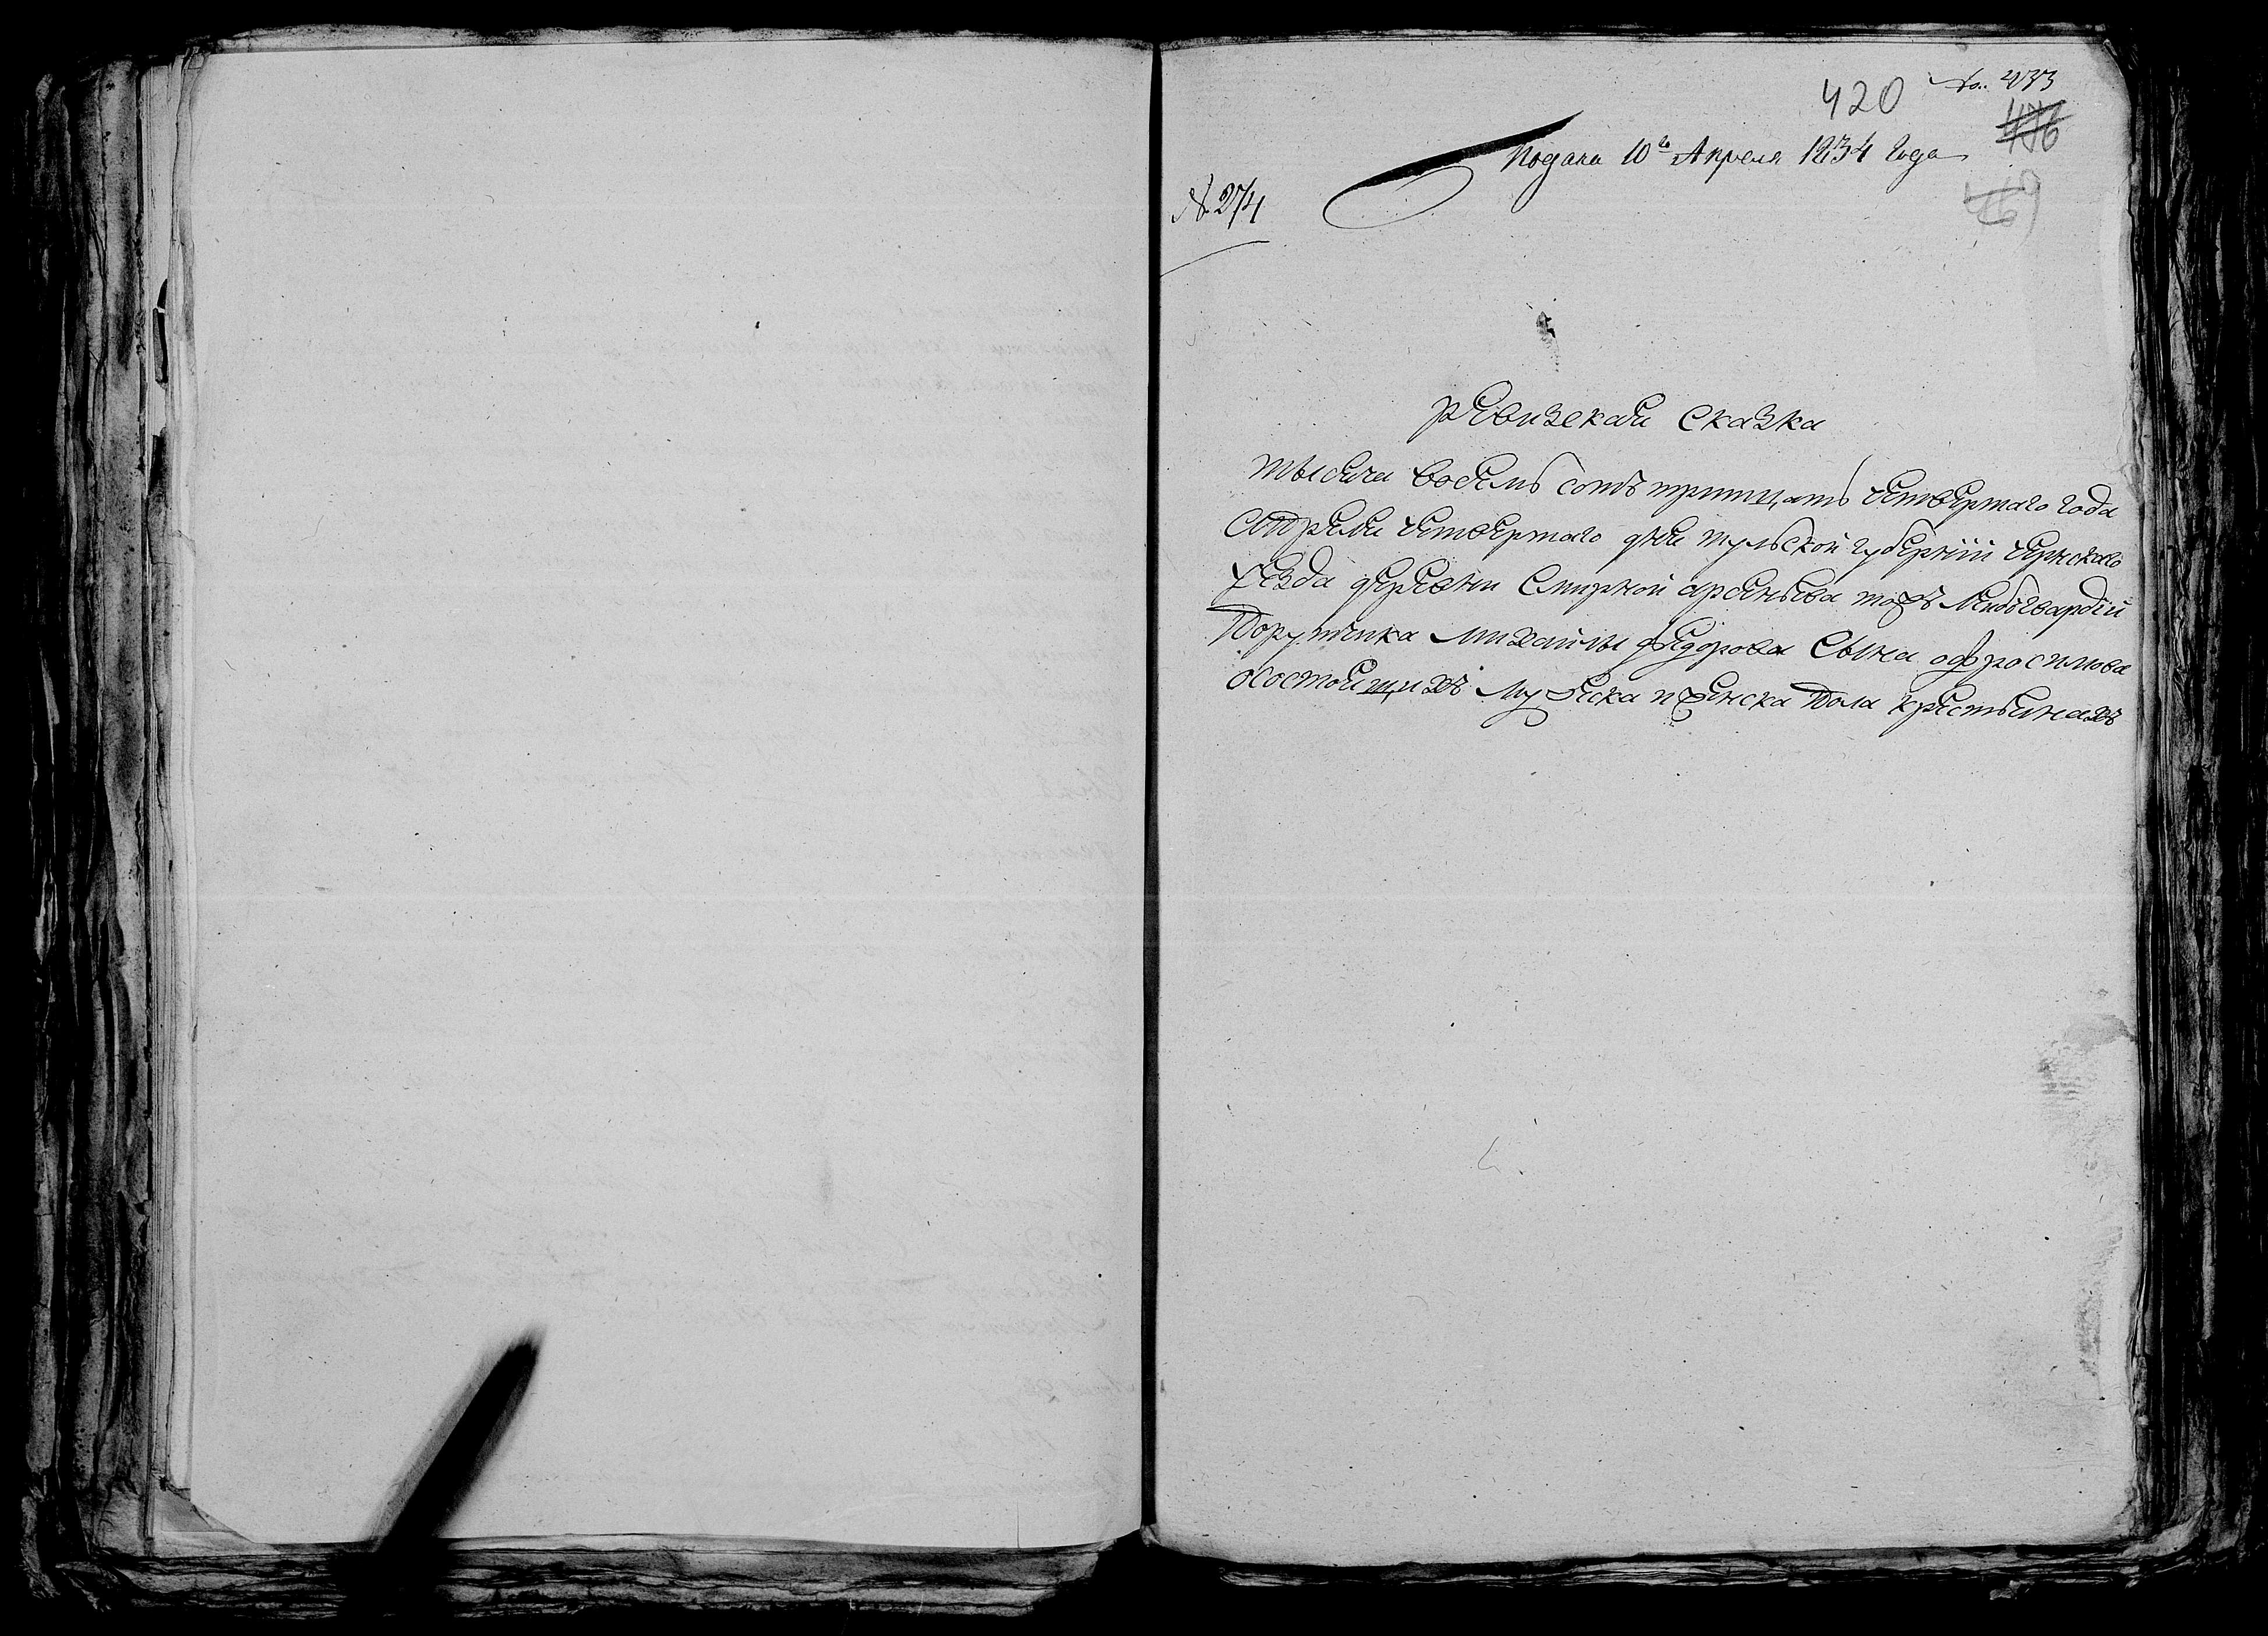 420
No. 433
476
Подана 10го Апреля 1834 года
469
№ 274
ревизская сказка
тысяча восемь сотъ тритцать четвертаго года
апреля четвертаго дня тульской губернии чернскаго
уезда деревни Смирной арсеньева тожъ лейбъгвардии
порутчика михайлы федорова сына офросимова
осостоящихъ мужеска и женска пола крестьянахъ